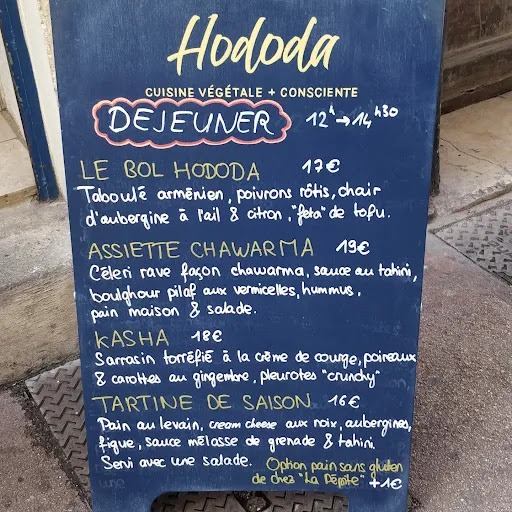 Hododa
CUISINE VÉGÉTALE + CONSCIENTE
DEJEUNER 12h→14h30
LE BOL HODODA 17€
Taboulé arménien, poivrons rôtis, chair
d'aubergine à l'ail & citron, "feta" de tofu.
ASSIETTE CHAWARMA 19€
Céleri rave façon chawarma, sauce au tahini,
boulghour pilaf aux vermicelles, hummus,
pain maison & salade.
KASHA 18€
Sarrasin torréfié à la crème de courge, poireaux
& carottes au gingembre, pleurotes "crunchy"
TARTINE DE SAISON 16€
Pain au levain, cream cheese aux noix, aubergines,
figue, sauce mélasse de grenade & tahini.
Servi avec une salade. Option pain sans gluten
de chez "La Pépite" +1€